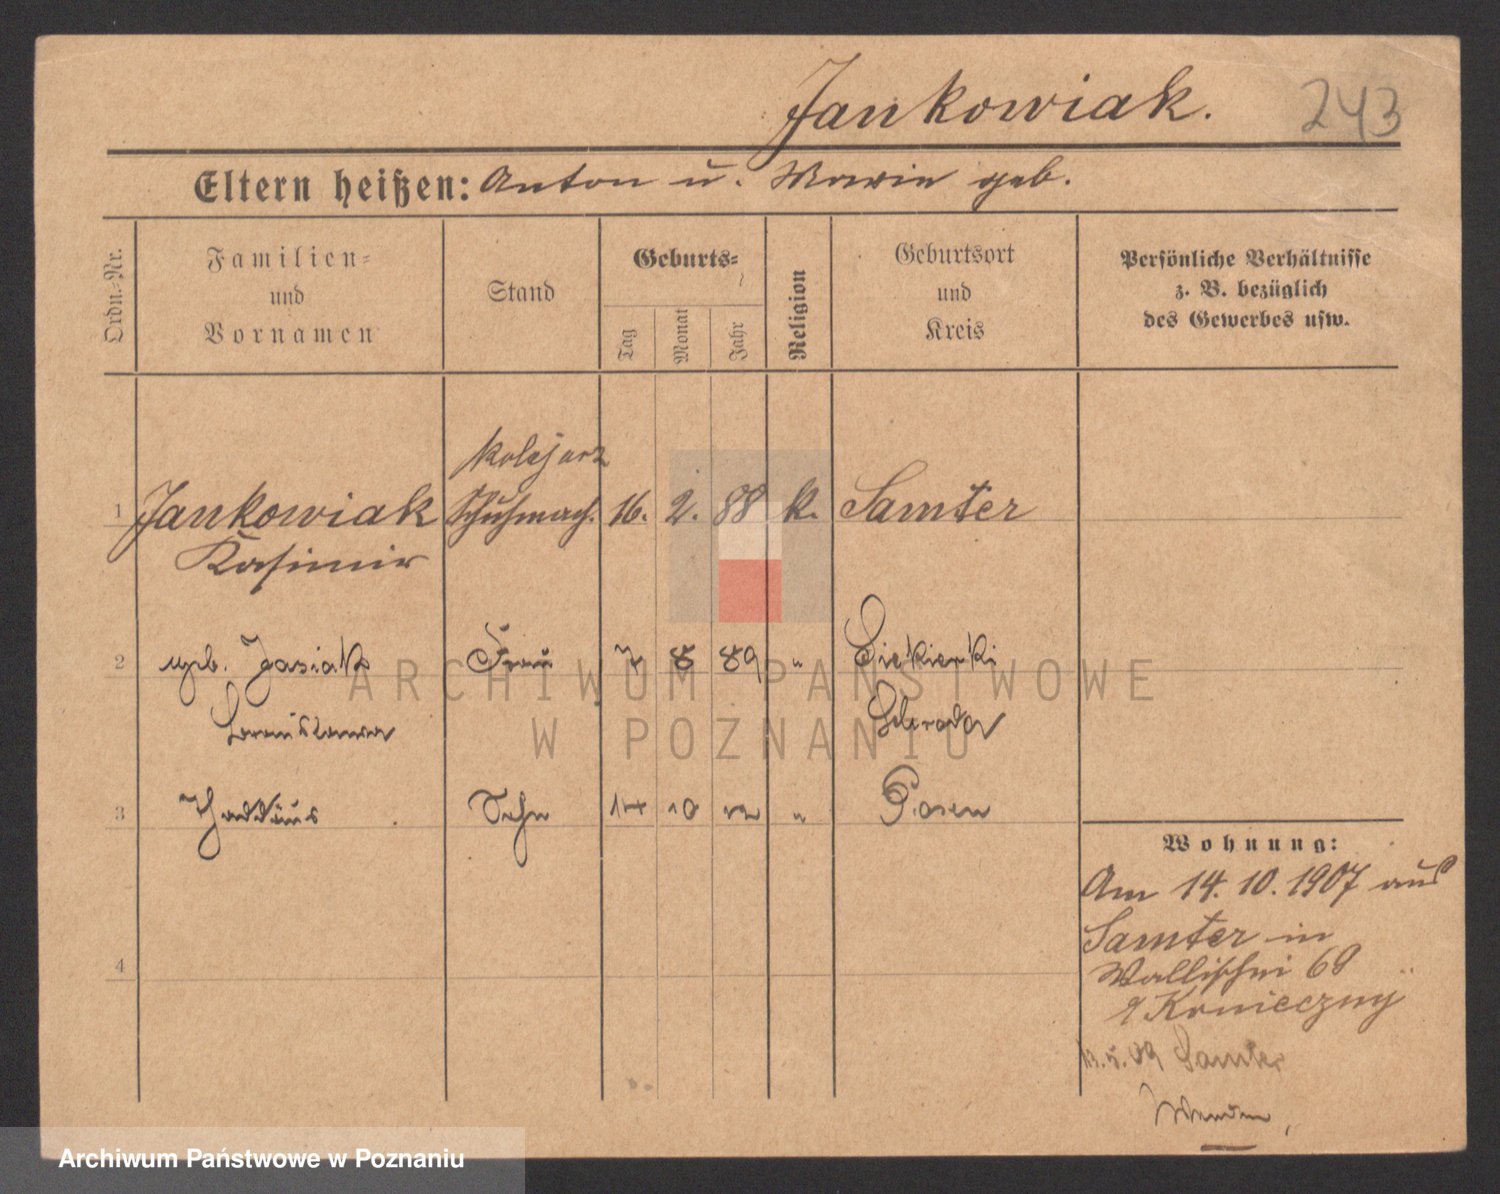 Jankowiak. 243
Eltern heißen: Anton u. Marie geb.
Ordn.-Nr.
Familien-
und
Vornamen
Stand
Geburts-
Tag
Monat
Jahr
Religion
Geburtsort
und
Kreis
Persönliche Verhältnisse
z. B. bezüglich
des Gewerbes usw.
kolejarz
1 Jankowiak Schuhmach. 16. 2. 88 k. Samter
Kasimir
2 geb. Jasiak Frau 7 8 89 " Siekierki
Schroda
3 Thaddäus Sohn 14 10 12 " Posen
4
Wohnung:
Am 14. 10. 1907 aus
Samter in
Wallischei 68
Konieczny
13.5.09 Samter
Wenden
ARCHIWUM PAŃSTWOWE
W POZNANIU
Archiwum Państwowe w Poznaniu